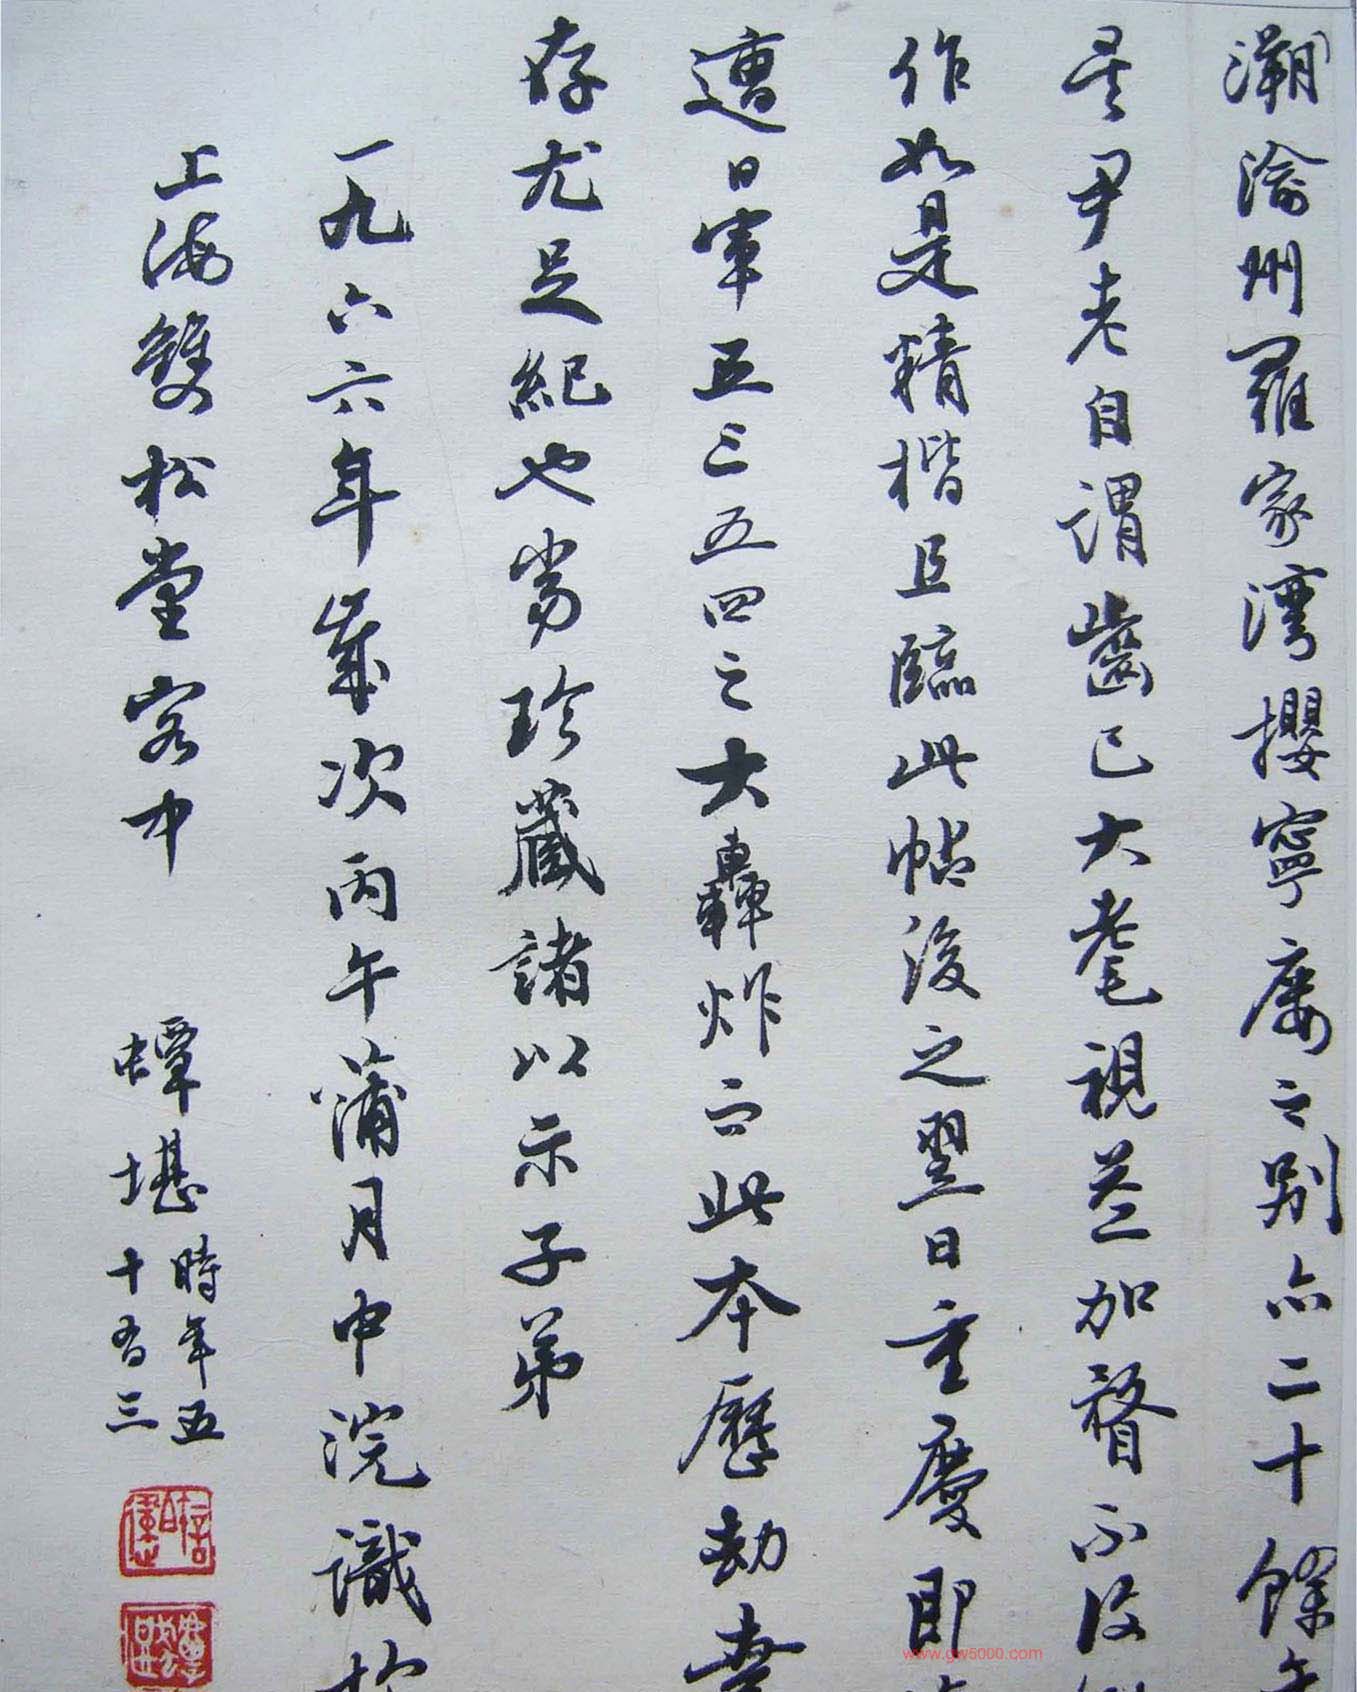 溯渝州羅家灣攖寧廔之別亦二十餘年
矣尹老自謂齒已大耄視益加瞀不復能
作如是精楷且臨此帖後之翌日重慶即
遭日軍五三五四之大轟炸而此本歷劫幸
存尤足紀也峇珍藏諸以示子弟
一九六六年歲次丙午蒲月中浣識於
上海雙松堂客中
蟫堪
時年五
十有三
www.gw5000.com